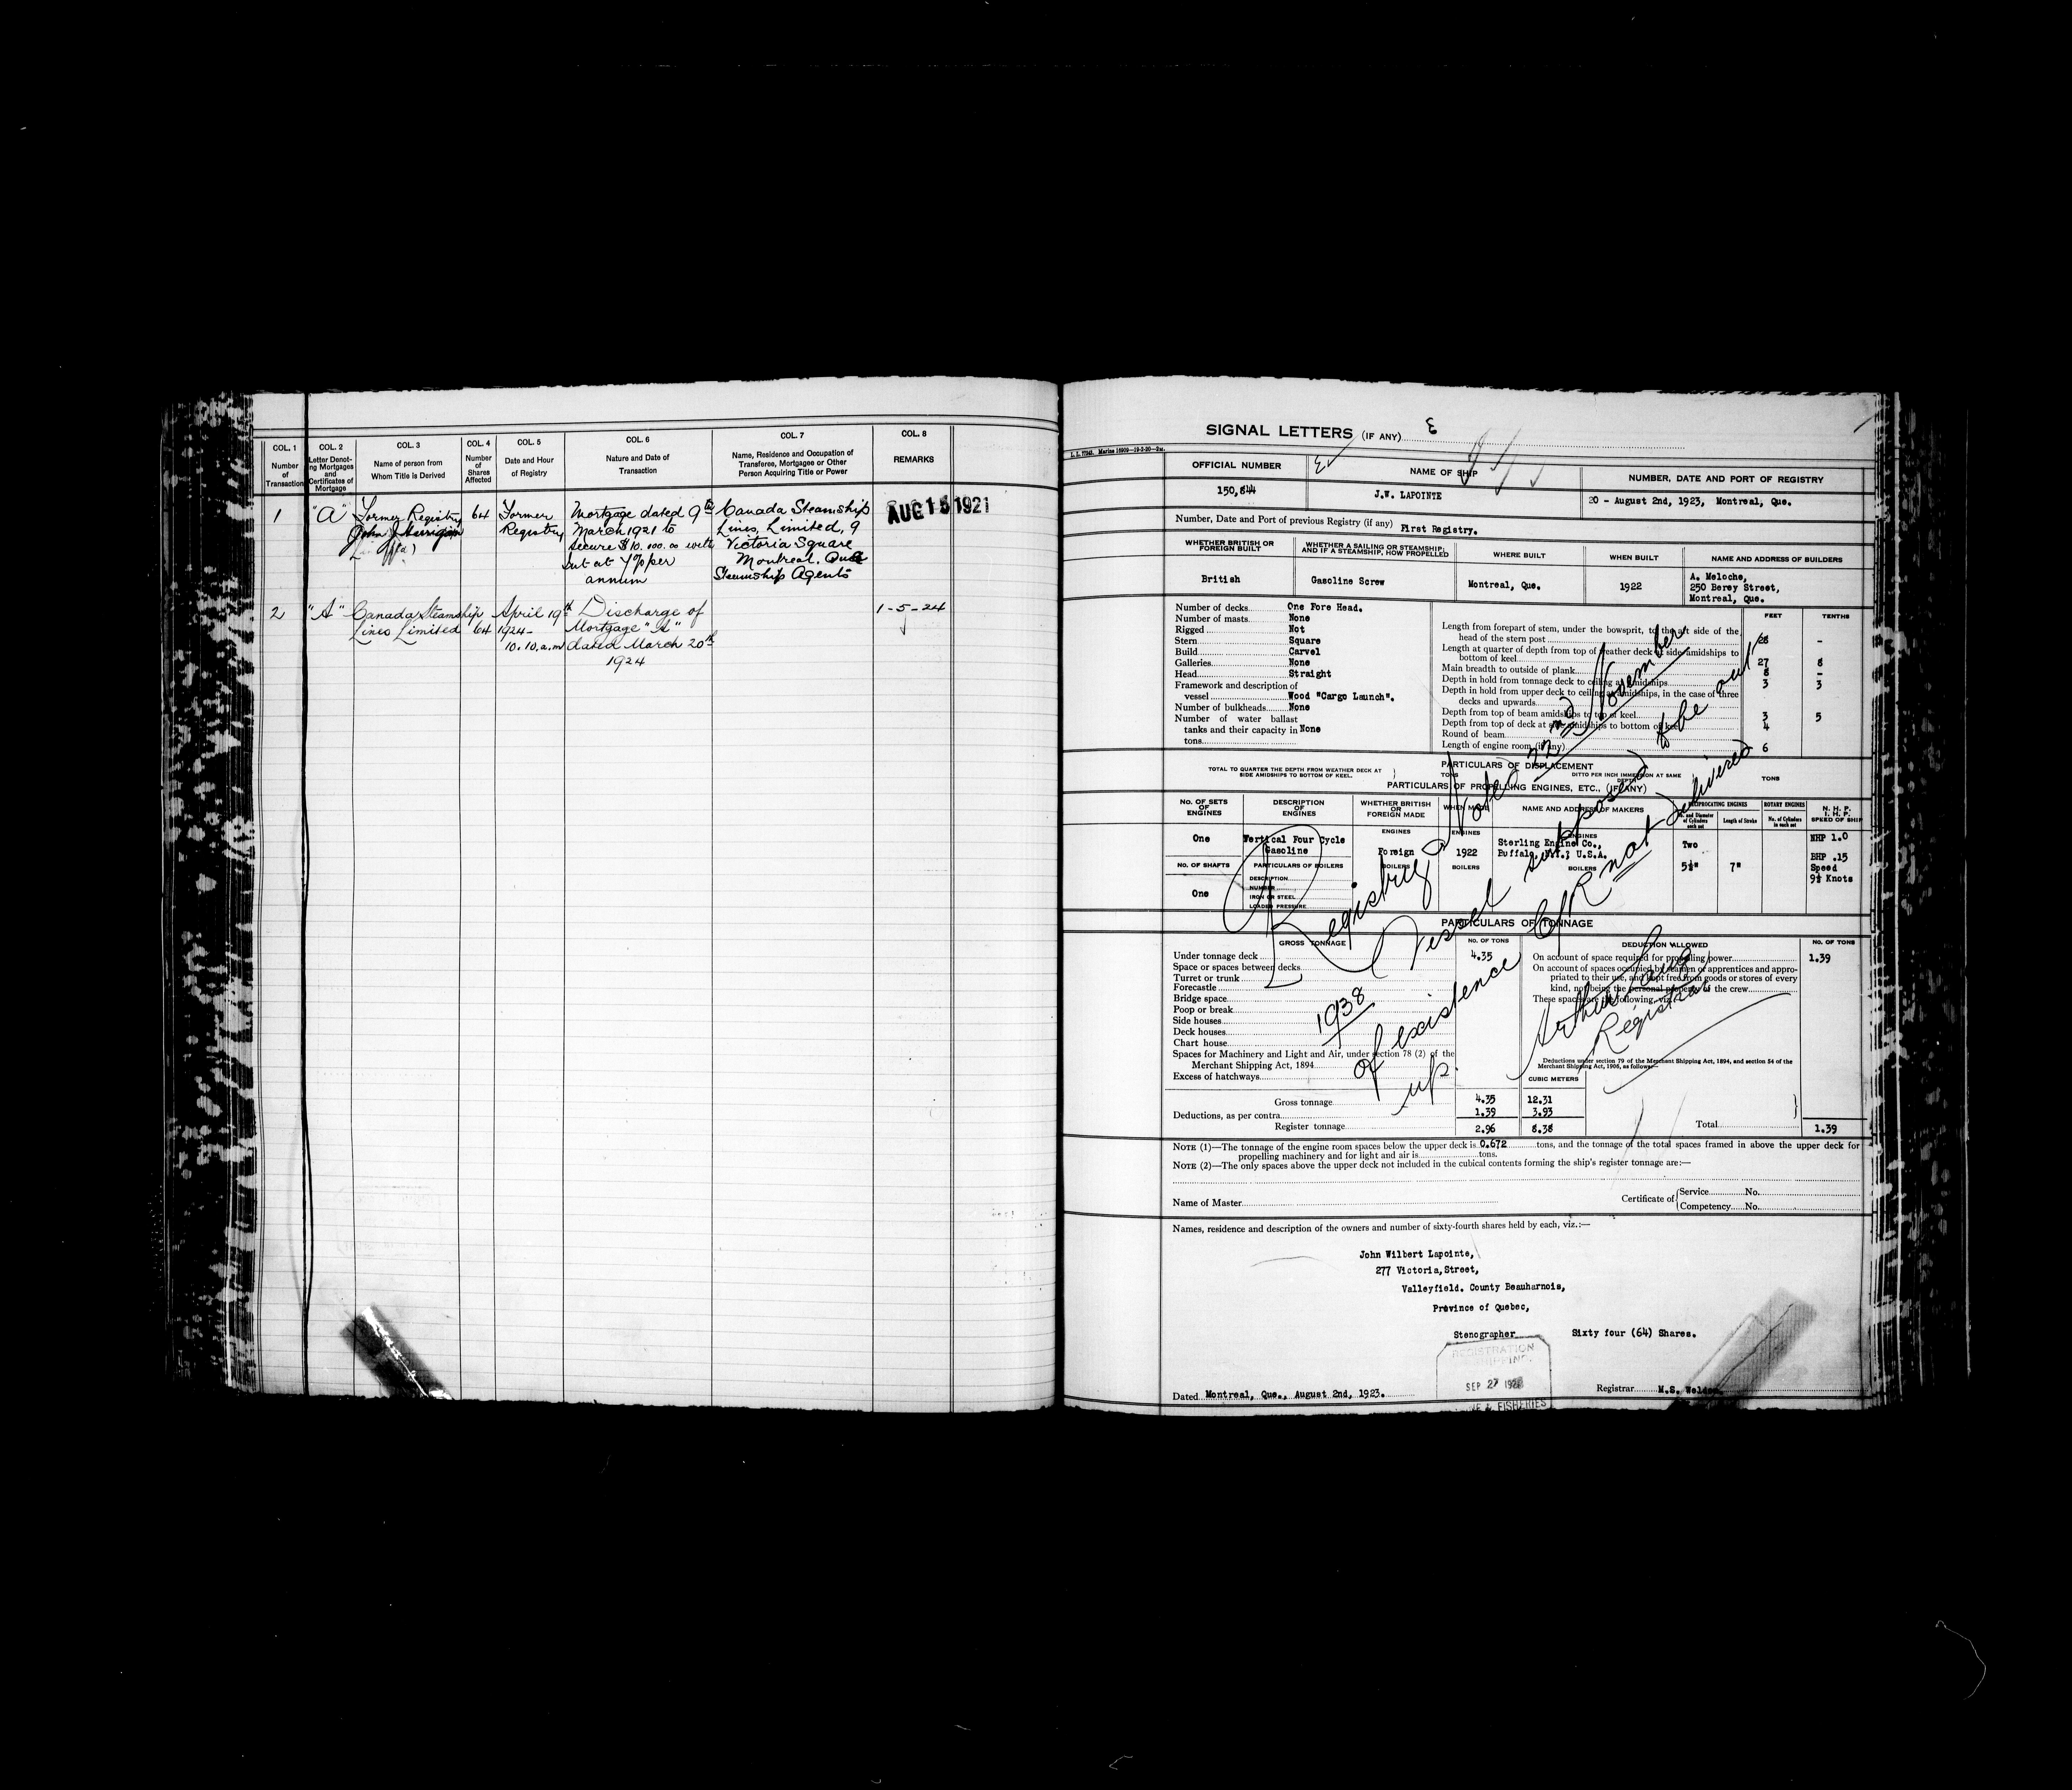 COL. 1
Number
of
Transaction
COL. 2
Letter Denot-
ing Mortgages
and
Certificates of
Mortgage
COL. 3
Name of person from
Whom Title is Derived
COL. 4
Number
of
Shares
Affected
COL. 5
Date and Hour
of Registry
COL. 6
Nature and Date of
Transaction
COL. 7
Name, Residence and Occupation of
Transferee, Mortgagee or Other
Person Acquiring Title or Power
COL. 8
REMARKS
1
"A"
Former Registry
John J Harrigan
64
Former
Registry
Mortgage dated 9th
March 1921 to
secure $10.000.00 with
Int at 7% per
annum
Canada Steamship
Lines, Limited, 9
Victoria Square
Montreal. Que
Steamship Agents
AUG 15 1921
2
"A"
Canada Steamship
Lines Limited
64
April 19th
1924-
10.10.a.m
Discharge of
Mortgage "A"
dated March 20th
1924
1-5-24
SIGNAL LETTERS (IF ANY)
L. L. 77343. Marine 16909—19-2-20—2M.
OFFICIAL NUMBER
150,844
NAME OF SHIP
J.W. LAPOINTE
NUMBER, DATE AND PORT OF REGISTRY
20 - August 2nd, 1923, Montreal, Que.
Number, Date and Port of previous Registry (if any) First Registry.
WHETHER BRITISH OR
FOREIGN BUILT
WHETHER A SAILING OR STEAMSHIP;
AND IF A STEAMSHIP, HOW PROPELLED
WHERE BUILT
WHEN BUILT
NAME AND ADDRESS OF BUILDERS
British
Gasoline Screw
Montreal, Que.
1922
A. Meloche,
250 Berey Street,
Montreal, Que.
Number of decks One Fore Head.
Number of masts None
Rigged Not
Stern Square
Build Carvel
Galleries None
Head Straight
Framework and description of
vessel Wood "Cargo Launch".
Number of bulkheads None
Number of water ballast
tanks and their capacity in None
tons
FEET
TENTHS
Length from forepart of stem, under the bowsprit, to the aft side of the
head of the stern post 28 -
Length at quarter of depth from top of weather deck at side amidships to
bottom of keel 27 8
Main breadth to outside of plank 8 -
Depth in hold from tonnage deck to ceiling at amidships 3 3
Depth in hold from upper deck to ceiling at amidships, in the case of three
decks and upwards
Depth from top of beam amidships to top of keel 3 5
Depth from top of deck at side amidships to bottom of keel 4
Round of beam
Length of engine room (if any) 6
PARTICULARS OF DISPLACEMENT
TOTAL TO QUARTER THE DEPTH FROM WEATHER DECK AT
SIDE AMIDSHIPS TO BOTTOM OF KEEL.
TONS
DITTO PER INCH IMMERSION AT SAME
DEPTH
TONS
PARTICULARS OF PROPELLING ENGINES, ETC., (IF ANY)
No. OF SETS
OF
ENGINES
DESCRIPTION
OF
ENGINES
WHETHER BRITISH
OR
FOREIGN MADE
WHEN MADE
NAME AND ADDRESS OF MAKERS
RECIPROCATING ENGINES
No. and Diameter
of Cylinders
each set
Length of Stroke
ROTARY ENGINES
No. of Cylinders
in each set
N. H. P.
I. H. P.
SPEED OF SHIP
ENGINES
ENGINES
ENGINES
One
Vertical Four Cycle
Gasoline
Foreign
1922
Sterling Engine Co.,
Buffalo, N.Y., U.S.A.
Two
5½"
7"
NHP 1.0
BHP .15
Speed
9½ Knots
NO. OF SHAFTS
One
PARTICULARS OF BOILERS
DESCRIPTION
NUMBER
IRON OR STEEL
LOADED PRESSURE
BOILERS
BOILERS
BOILERS
Registry Noted 22nd November
1938
(Vessel supposed to be out
of existence C/R not delivered
up.
Registrar
PARTICULARS OF TONNAGE
GROSS TONNAGE
NO. OF TONS
Under tonnage deck 4.35
Space or spaces between decks
Turret or trunk
Forecastle
Bridge space
Poop or break
Side houses
Deck houses
Chart house
Spaces for Machinery and Light and Air, under section 78 (2) of the
Merchant Shipping Act, 1894
Excess of hatchways
DEDUCTION ALLOWED
NO. OF TONS
On account of space required for propelling power 1.39
On account of spaces occupied by seamen or apprentices and appro-
priated to their use, and kept free from goods or stores of every
kind, not being the personal property of the crew
These spaces are the following, viz.:
Deductions under section 79 of the Merchant Shipping Act, 1894, and section 54 of the
Merchant Shipping Act, 1906, as follows:—
CUBIC METERS
Gross tonnage 4.35 12.31
Deductions, as per contra 1.39 3.93
Register tonnage 2.96 8.38
Total 1.39
NOTE (1)—The tonnage of the engine room spaces below the upper deck is 0.672 tons, and the tonnage of the total spaces framed in above the upper deck for
propelling machinery and for light and air is tons.
NOTE (2)—The only spaces above the upper deck not included in the cubical contents forming the ship's register tonnage are:—
Name of Master
Certificate of
Service No.
Competency No.
Names, residence and description of the owners and number of sixty-fourth shares held by each, viz.:—
John Wilbert Lapointe,
277 Victoria, Street,
Valleyfield. County Beauharnois,
Province of Quebec,
Stenographer Sixty four (64) Shares.
REGISTRATION
SHIPPING.
SEP 27
& FISHERIES
Dated Montreal, Que., August 2nd, 1923.
Registrar M.S.